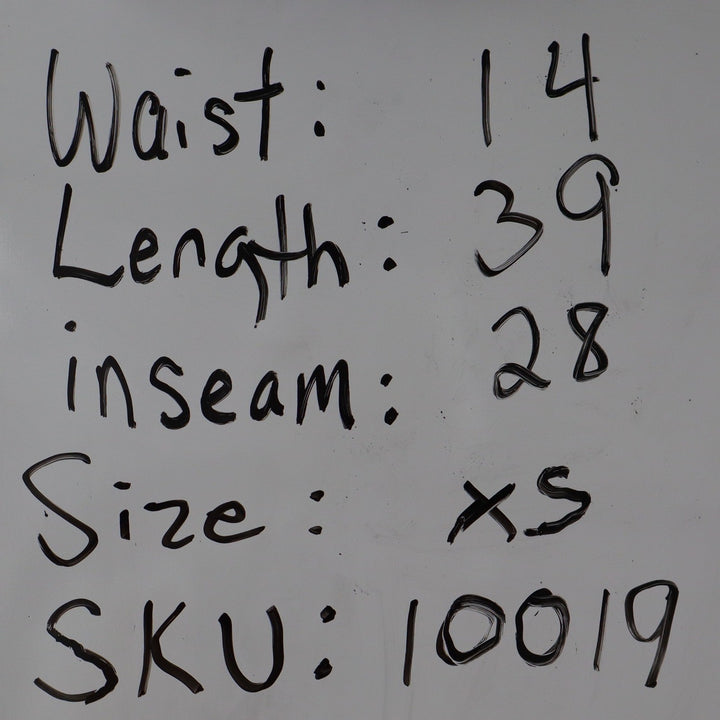 Waist: 14
Length: 39
inseam: 28
Size: XS
SKU: 10019